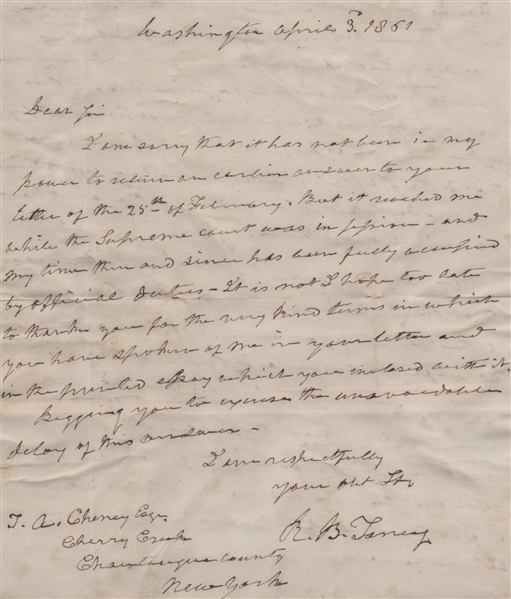 Washington April 3d. 1861
Dear Sir
I am sorry that it has not been in my
power to return an earlier answer to your
letter of the 25th of February. But it reached me
while the Supreme court was in session - and
my time then and since has been fully occupied
by official duties - It is not I hope too late
to thank you for the very kind terms in which
you have spoken of me in your letter and
in the printed essay which you inclosed with it.
Begging you to excuse the unavoidable
delay of this answer -
I am respectfully
your obt St.
R. B. Taney
T. A. Cheney Esqr.
Cherry Creek
Chautauque County
New York